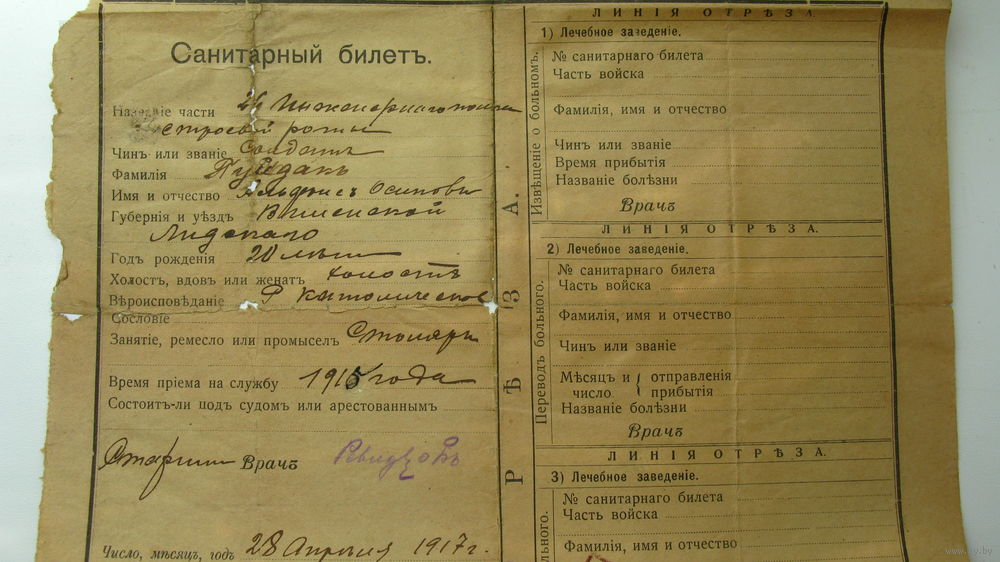 Санитарный билетъ.
Название части 2й Инженерного полка
строевой роты
Чинъ или званіе Солдатъ
Фамилія Пуйданъ
Имя и отчество Осиповъ
Губернія и уѣздъ Виленской
Лидскаго
Годъ рожденія 20 лѣтъ
Холостъ, вдовъ или женатъ холостъ
Вѣроисповѣданіе Р католическое
Сословіе
Занятіе, ремесло или промыселъ Столяръ
Время пріема на службу 1915 года
Состоитъ-ли подъ судомъ или арестованнымъ
Старший Врачъ
Число, мѣсяцъ, годъ 28 Апреля 1917 г.
РѢЗА.
ЛИНІЯ ОТРѢЗА.
Извѣщеніе о больномъ.
1) Лечебное заведеніе.
№ санитарнаго билета
Часть войска
Фамилія, имя и отчество
Чинъ или званіе
Время прибытія
Названіе болѣзни
Врачъ
ЛИНІЯ ОТРѢЗА.
Переводъ больного.
2) Лечебное заведеніе.
№ санитарнаго билета
Часть войска
Фамилія, имя и отчество
Чинъ или званіе
Мѣсяцъ и число { отправленія
прибытія
Названіе болѣзни
Врачъ
ЛИНІЯ ОТРѢЗА.
льного.
3) Лечебное заведеніе.
№ санитарнаго билета
Часть войска
Фамилія, имя и отчество